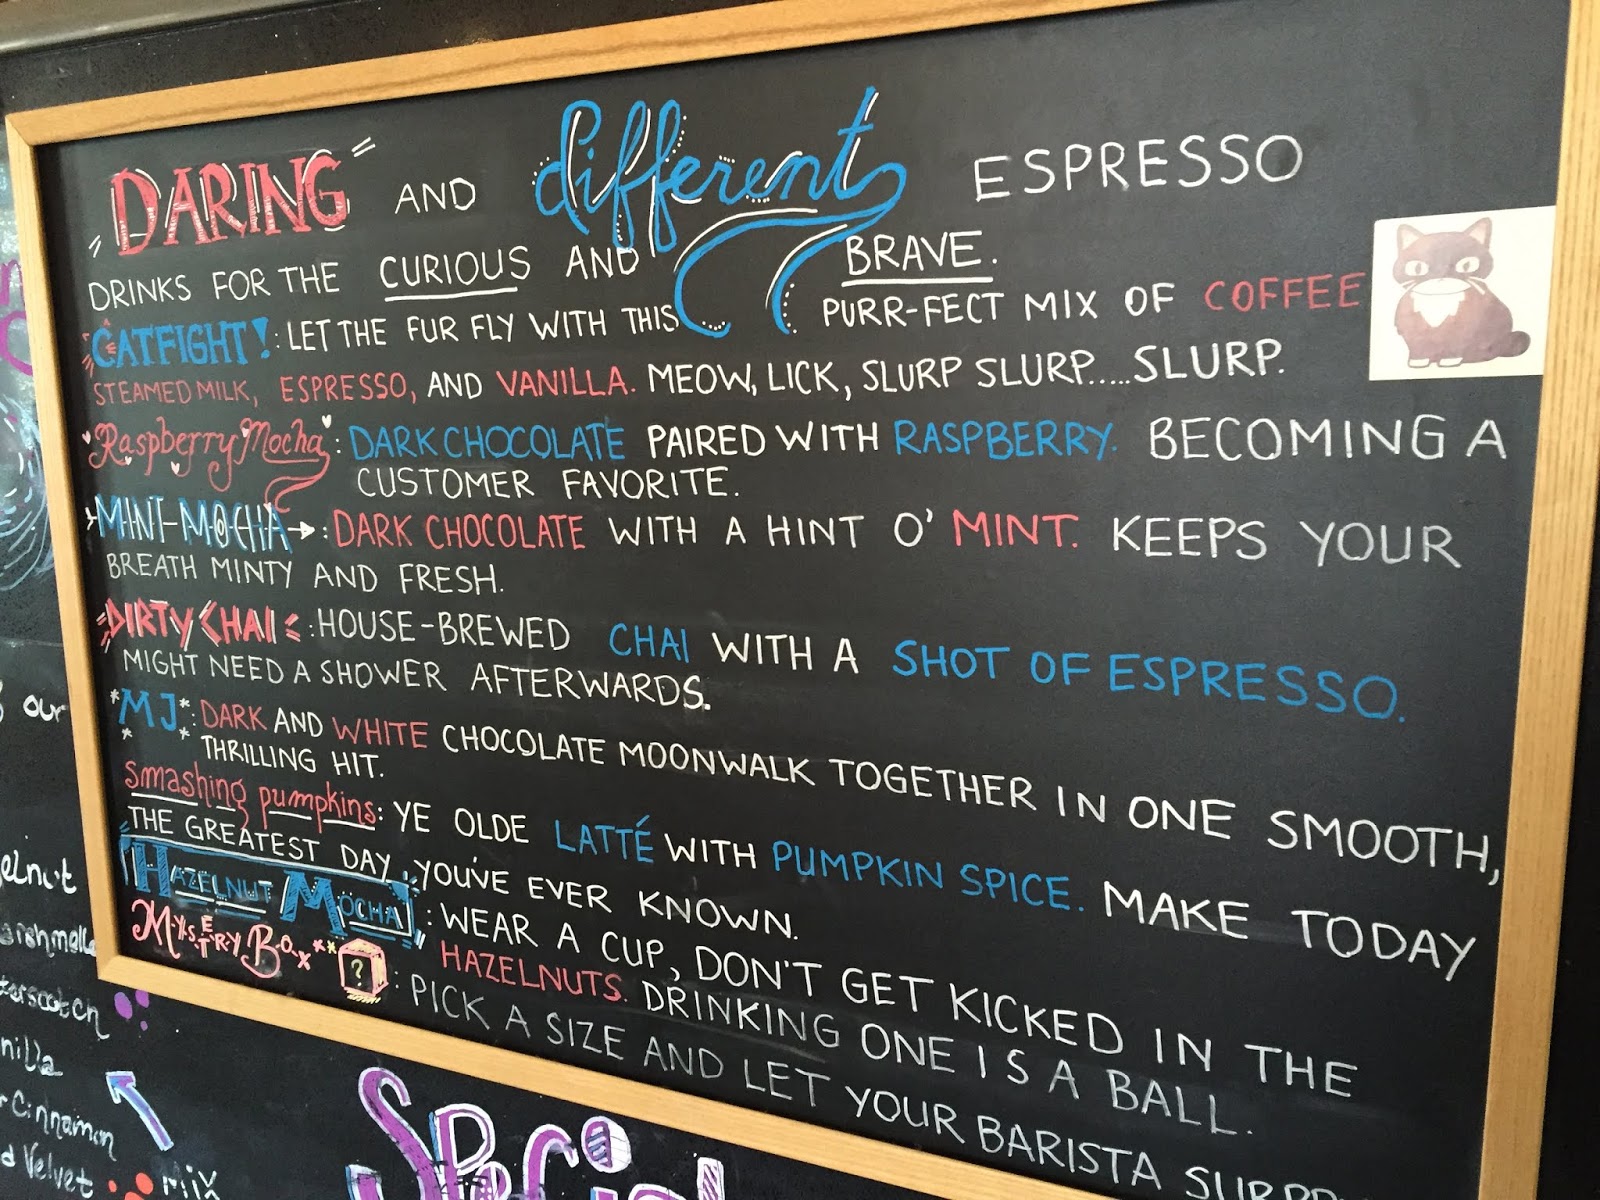 DARING AND different ESPRESSO
DRINKS FOR THE CURIOUS AND BRAVE.
CATFIGHT!: LET THE FUR FLY WITH THIS PURR-FECT MIX OF COFFEE
STEAMED MILK, ESPRESSO, AND VANILLA. MEOW, LICK, SLURP SLURP.....SLURP.
Raspberry Mocha: DARK CHOCOLATE PAIRED WITH RASPBERRY. BECOMING A
CUSTOMER FAVORITE.
MINT-MOCHA: DARK CHOCOLATE WITH A HINT O' MINT. KEEPS YOUR
BREATH MINTY AND FRESH.
DIRTY CHAI: HOUSE-BREWED CHAI WITH A SHOT OF ESPRESSO.
MIGHT NEED A SHOWER AFTERWARDS.
*MJ*: DARK AND WHITE CHOCOLATE MOONWALK TOGETHER IN ONE SMOOTH,
THRILLING HIT.
smashing pumpkins: YE OLDE LATTÉ WITH PUMPKIN SPICE. MAKE TODAY
THE GREATEST DAY YOU'VE EVER KNOWN.
HAZELNUT MOCHA: WEAR A CUP, DON'T GET KICKED IN THE
HAZELNUTS. DRINKING ONE IS A BALL.
MYSTERY BOX ?: PICK A SIZE AND LET YOUR BARISTA
our
Cinnamon
Velvet
Mix